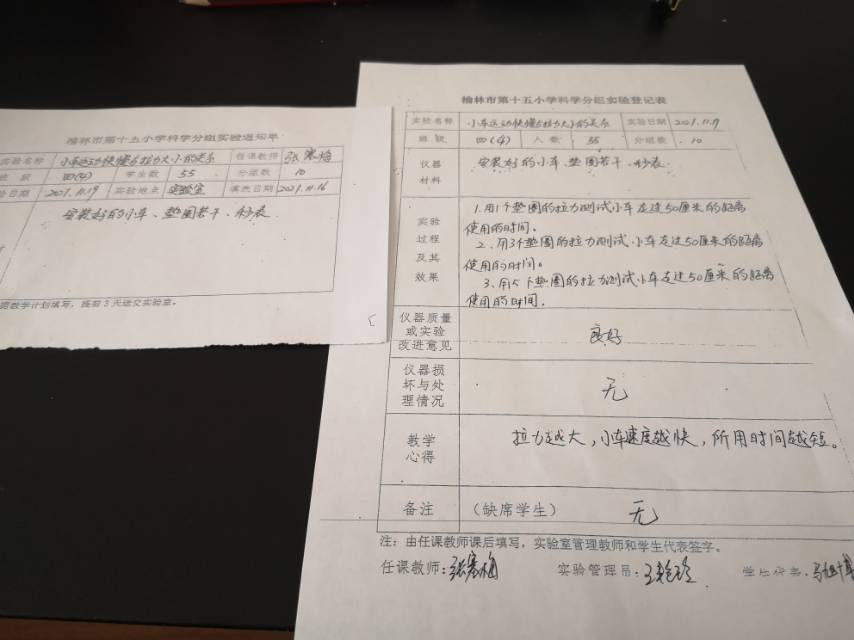 榆林市第十五小学科学分组实验通知单
实验名称 小车运动快慢与拉力大小的关系 任课教师 张寒梅
班 级 四(4) 学生数 55 分组数 10
验日期 2021.11.19 实验地点 实验室 填表日期 2021.11.16
安装好的小车、垫圈若干、秒表
照教学计划填写,提前3天送交实验室。
榆林市第十五小学科学分组实验登记表
实验名称 小车运动快慢与拉力大小的关系 实验日期 2021.11.19
班 级 四(4) 人 数 55 分组数 10
仪器
材料
安装好的小车、垫圈若干、秒表
实验
过程
及其
效果
1.用1个垫圈的拉力测试小车走过50厘米的距离
使用的时间。
2.用3个垫圈的拉力测试小车走过50厘米的距离
使用的时间。
3.用5个垫圈的拉力测试小车走过50厘米的距离
使用的时间.
仪器质量
或实验
改进意见
良好
仪器损
坏与处
理情况
无
教学
心得
拉力越大,小车速度越快,所用时间越短。
备注 (缺席学生) 无
注:由任课教师课后填写,实验室管理教师和学生代表签字。
任课教师:张寒梅 实验管理员: 学生代表: